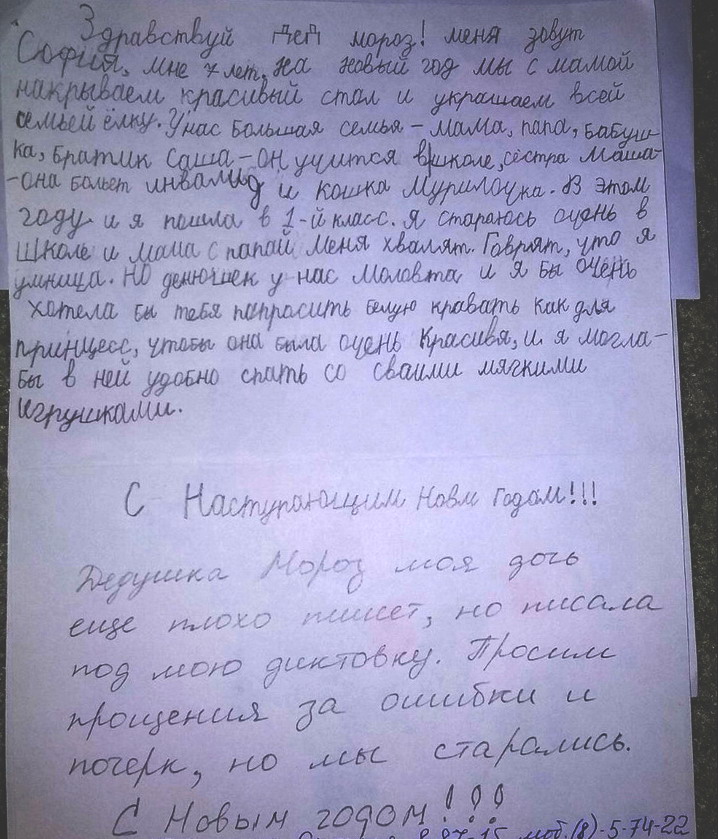 Здравствуй дед мороз! меня зовут
София, мне 7 лет, на новый год мы с мамой
накрываем красивый стол и украшаем всей
семьей ёлку. У нас большая семья – мама, папа, бабуш-
ка, братик Саша – он учится в школе, сестра Маша –
-она болеет инвалид и кошка Мурилочка. В этом
году и я пошла в 1-й класс. Я стараюсь очень в
школе и мама с папай меня хвалят. Говрят, что я
умница. Но денюшек у нас маловта и я бы очень
хотела бы тебя папрасить белую кравать как для
принцесс, чтобы она была очень красивя, и я могла-
бы в ней удобно спать со сваими мягкими
игрушками.
С Наступающим Новм Годом!!!
Дедушка Мороз моя дочь
еще плохо пишет, но писала
под мою диктовку. Просим
прощения за ошибки и
почерк, но мы старались.
С Новым годом!!!
моб.(8)-5-74-22